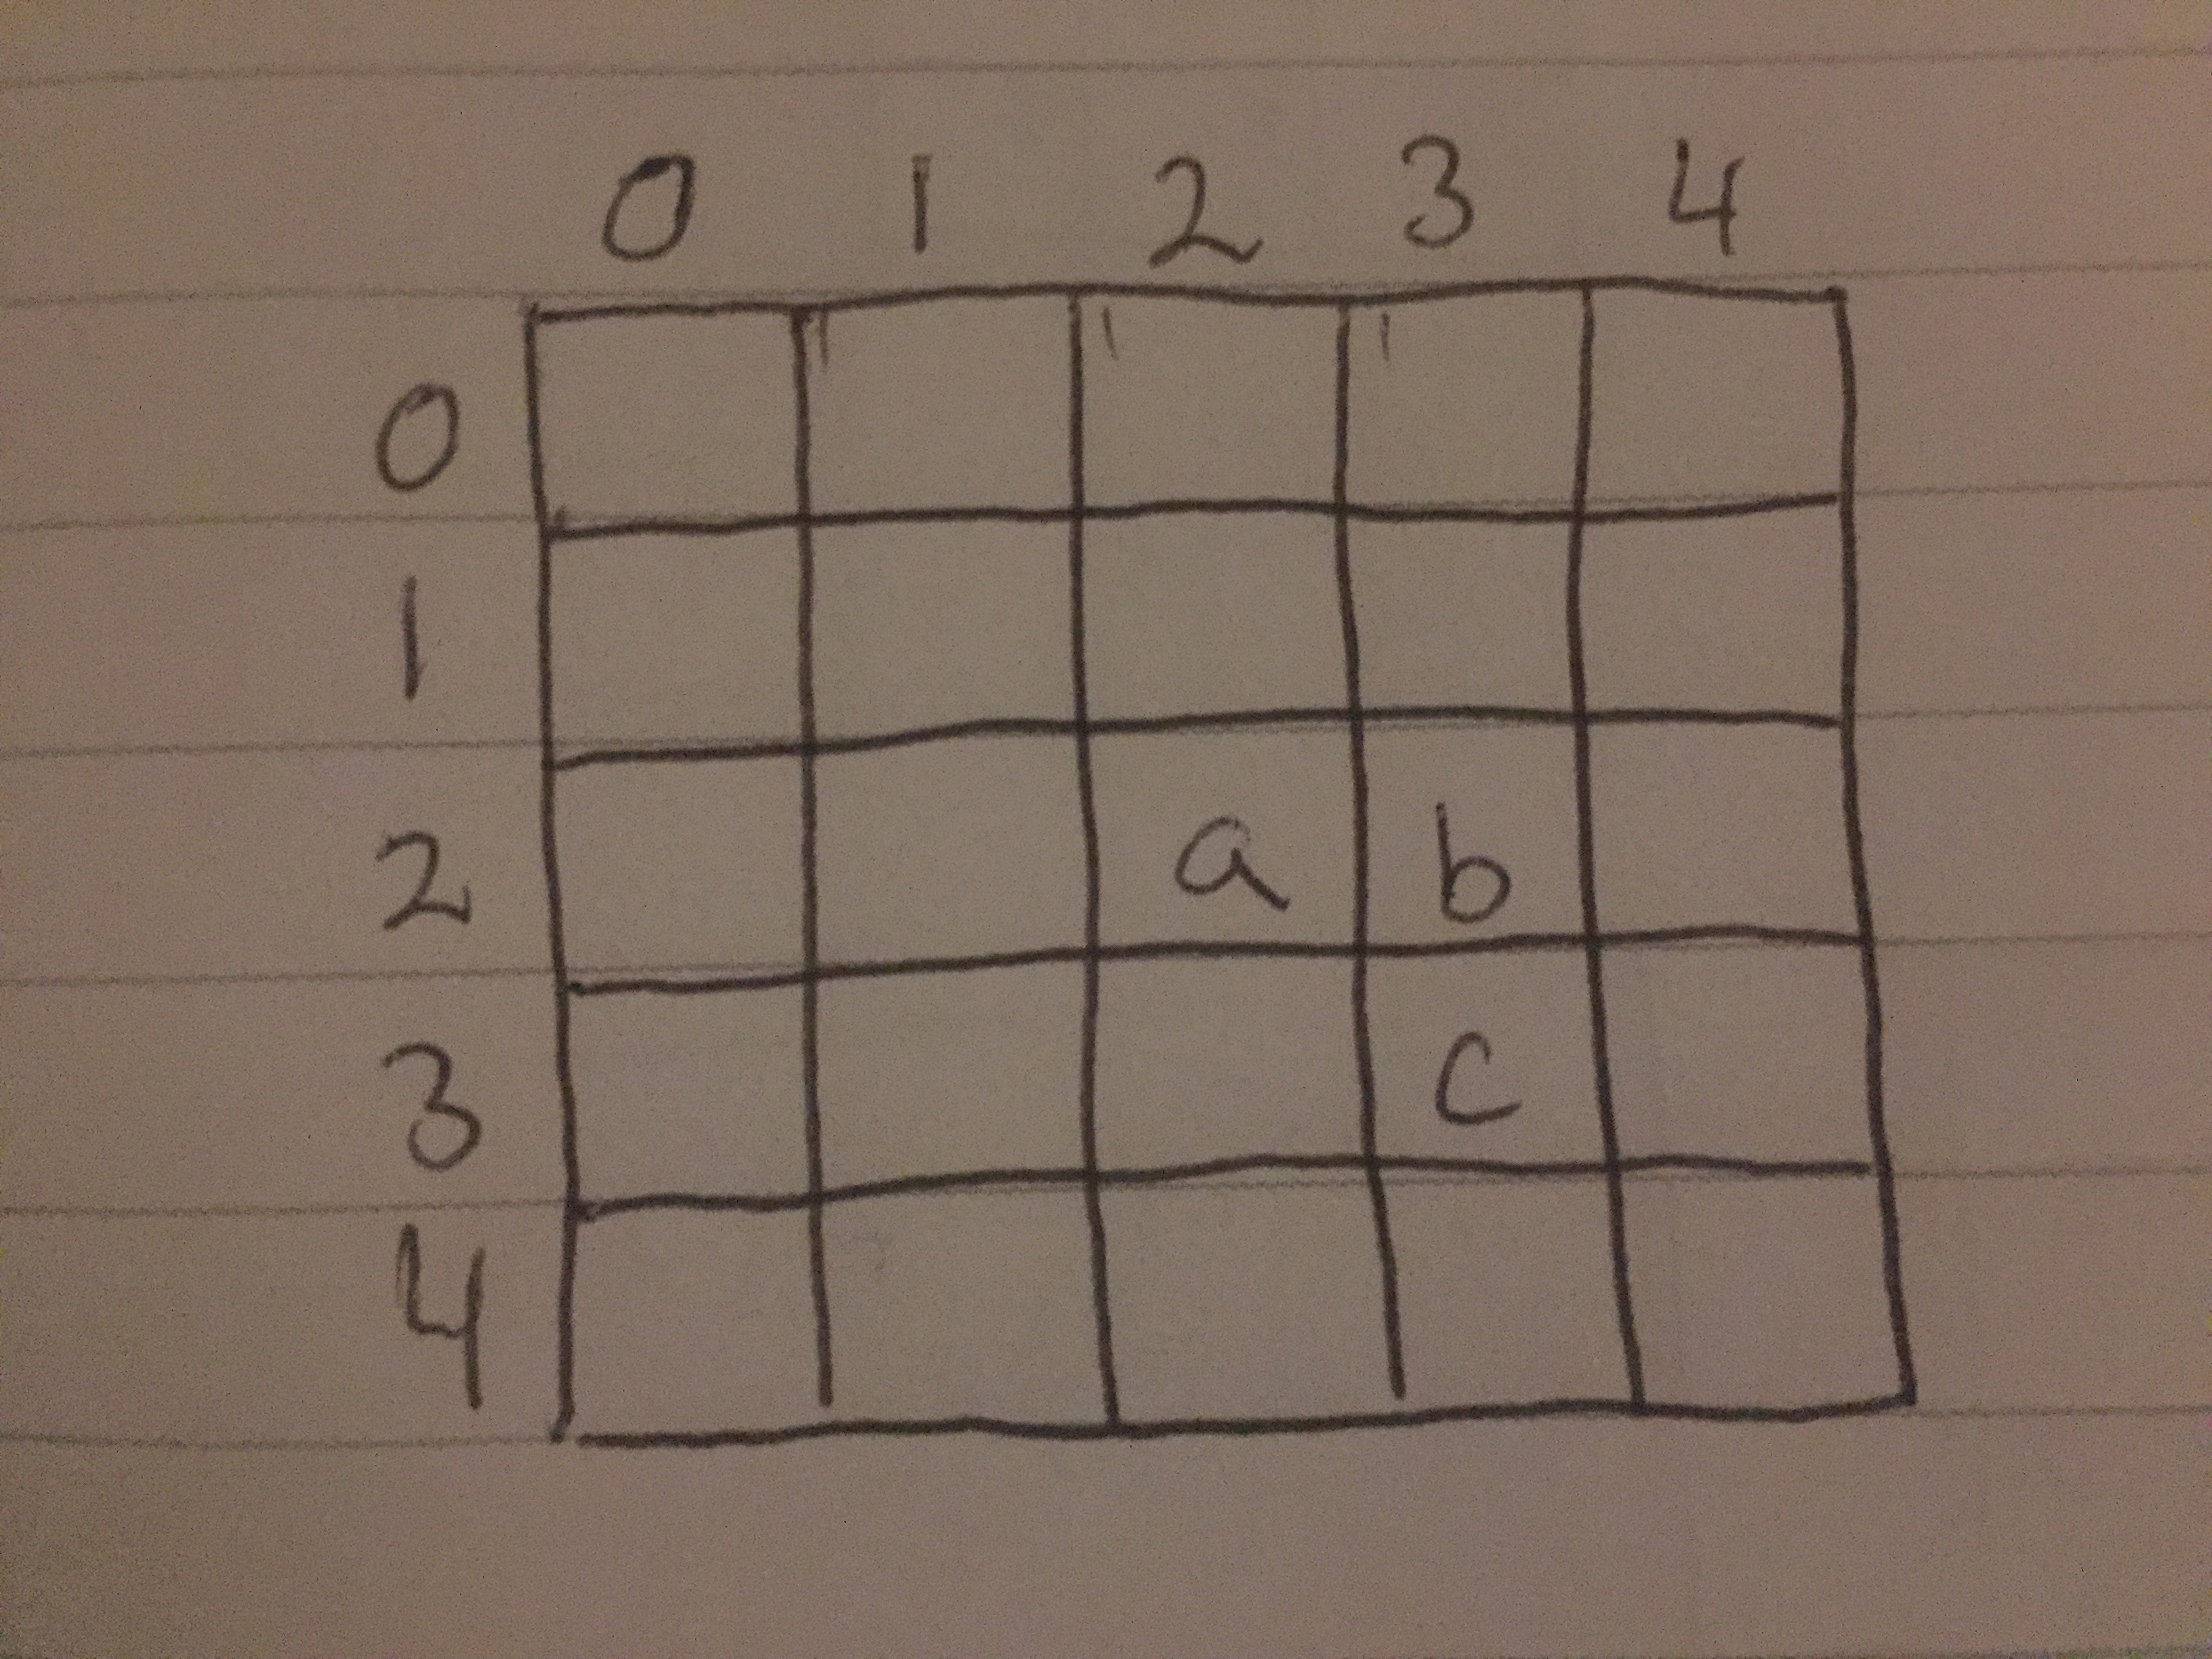 0 1 2 3 4
0
1
2 a b
3 c
4